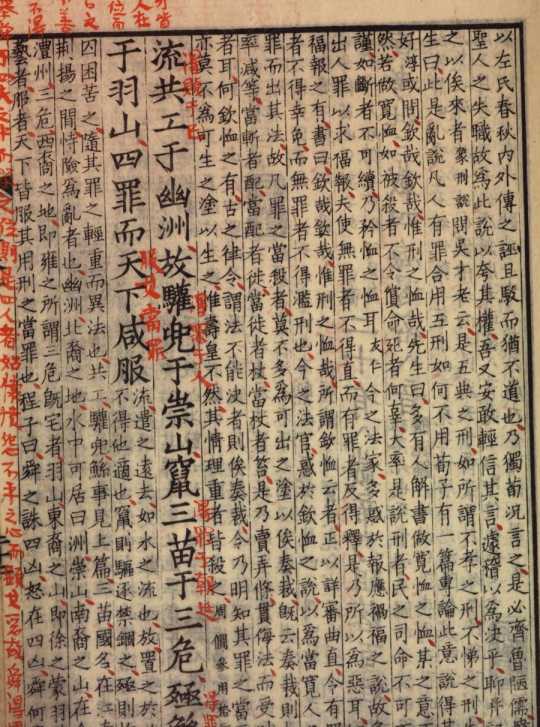 以左氏春秋內外傳之誣且駁而猶不道也乃獨苟況言之是必齊魯陋儒
聖人之失職故為此說以奪其權吾又安敢輕信其言遽稽以為決乎聊并
之以俟來者象刑說問吳才老云是五典之刑如所謂不孝之刑不悌之刑
生曰此是亂說凡人有罪合用五刑如何不用荀子有一篇專論此意說得甚
好淳或問欽哉欽哉惟刑之恤哉先生曰多有人解書做寬恤之恤某之意
然若做寬恤如被殺者不令償命死者何辜大率是說刑者民之司命不可
謹如斷者不可續乃矜恤之恤耳今之法家多惑於報應禍福之說故多
出人罪以求福報夫使無罪者不得直而有罪者反得釋是乃所以為惡耳
福報之有書曰欽哉欽哉惟刑之恤哉所謂欽恤云者正以詳審曲直令有
者不得幸免而無罪者不得濫刑也今之法官惑於欽恤之說以為當寬人
罪而出其法故凡罪之當殺者莫不多為可出之塗以俟奏裁既云奏裁則
率減等當斬者配當配者徒當徒者杖當杖者笞是乃賣弄條貫侮法而受
者耳何欽恤之有古之律令謂法不能決者則俟奏裁今乃明知其罪之當
亦莫不為可生之塗以生之惟壽皇不然其情理重者皆殺之
流共工于幽洲放驩兜于崇山竄三苗于三危殛鯀
于羽山四罪而天下咸服
流遣之遠去如水之流也放置之於
不得他適也竄則驅逐禁錮之殛則拘
囚困苦之隨其罪之輕重而異法也共工驩兜鯀事見上篇三苗國名在江
荆揚之間恃險為亂者也幽洲北裔之地水中可居曰洲崇山南裔之山在
澧州三危西裔之地即雍之所謂三危既宅者羽山東裔之山即徐之蒙羽
藝者服者天下皆服其用刑之當罪也程子曰舜之誅四凶怒在四凶舜何